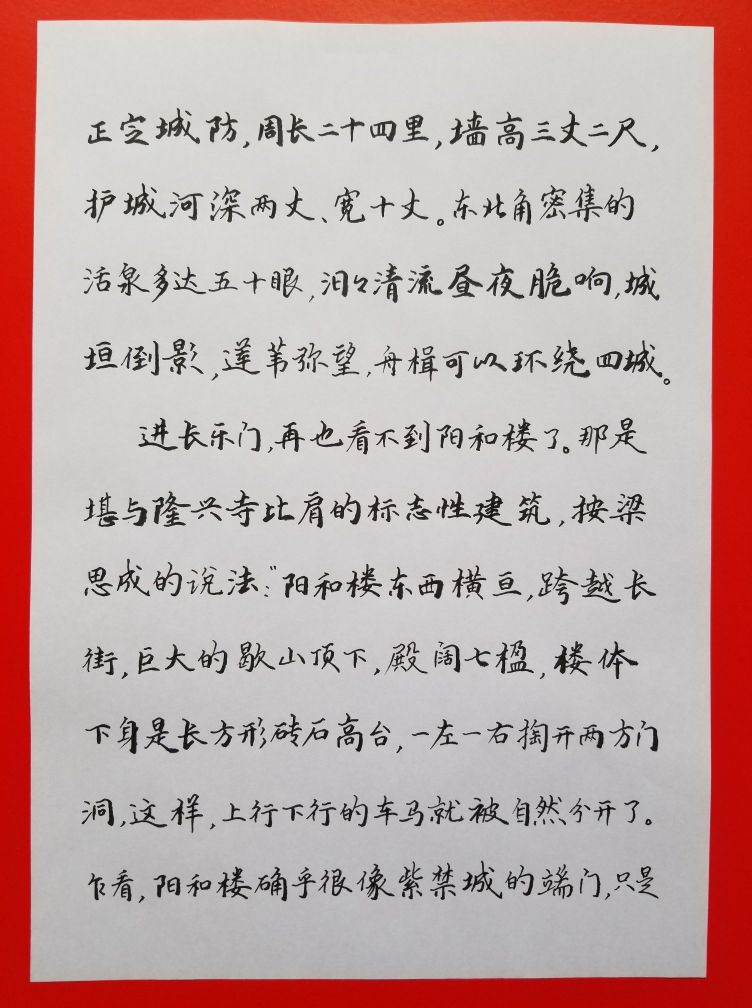 正定城防，周长二十四里，墙高三丈二尺，
护城河深两丈、宽十丈。东北角密集的
活泉多达五十眼，汩々清流昼夜脆响，城
垣倒影，莲苇弥望，舟楫可以环绕四城。
进长乐门，再也看不到阳和楼了。那是
堪与隆兴寺比肩的标志性建筑，按梁
思成的说法：“阳和楼东西横亘，跨越长
街，巨大的歇山顶下，殿阔七楹，楼体
下身是长方形砖石高台，一左一右掏开两方门
洞，这样，上行下行的车马就被自然分开了。
乍看，阳和楼确乎很像紫禁城的端门，只是